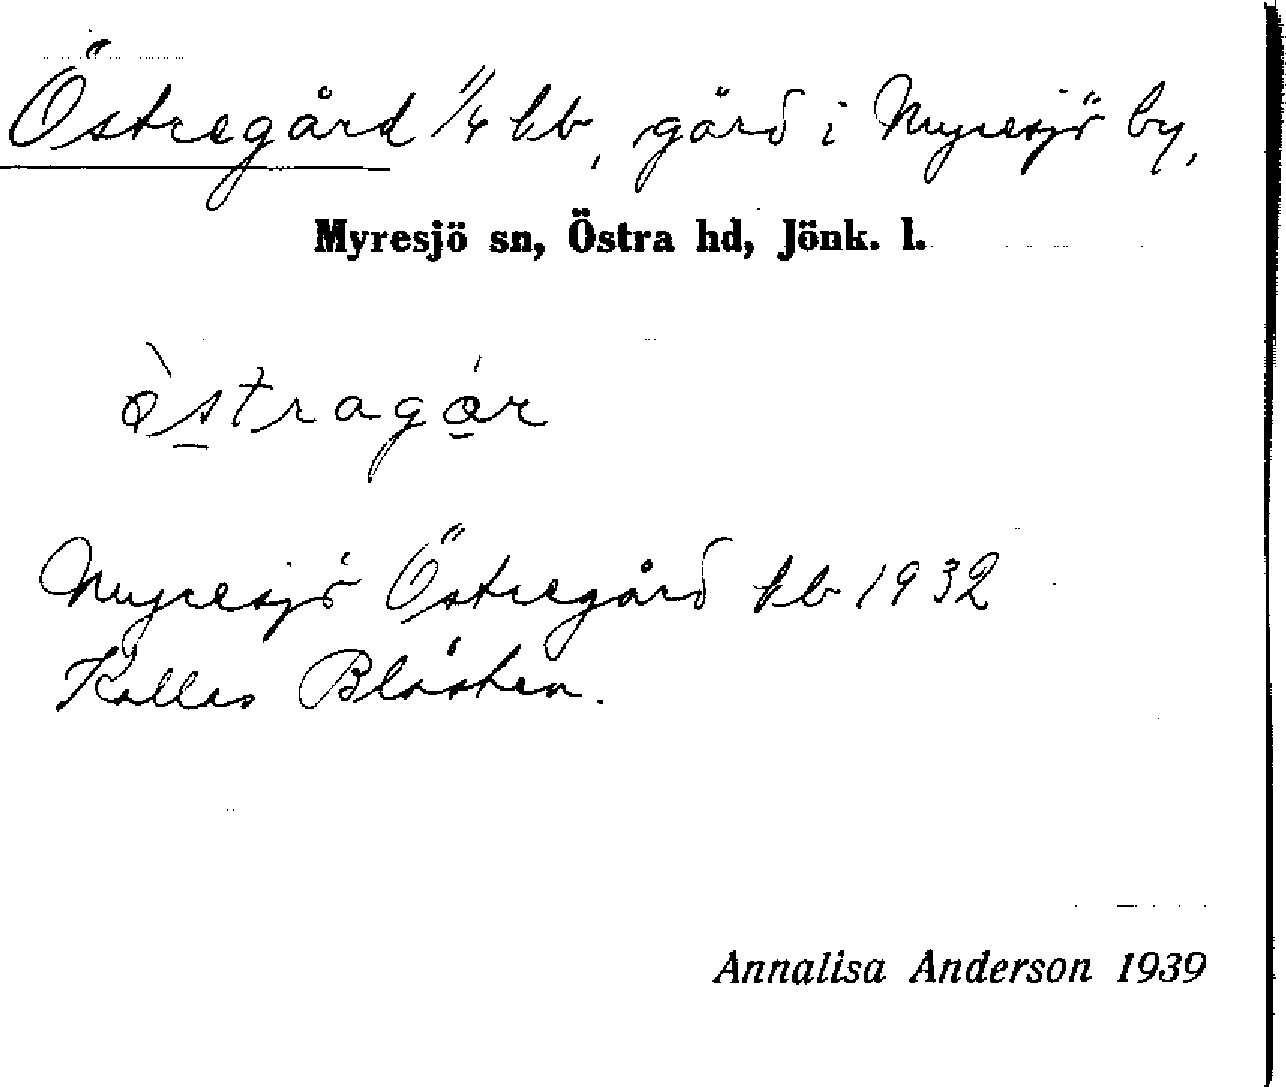 Östregård 1/4 kb, gård i Myresjö by,
Myresjö sn, Östra hd, Jönk. l.
Myresjö Östregård kb 1932
Kallas
Annalisa Anderson 1939